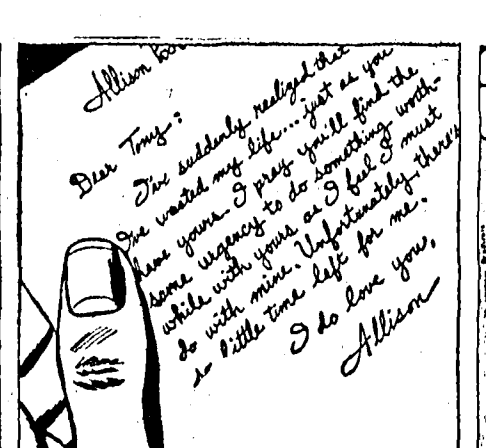 Allison
Dear Tony:
I've suddenly realized that
I've wasted my life... just as you
have yours. I pray you'll find the
same urgency to do something worth-
while with yours as I feel I must
do with mine. Unfortunately, there's
so little time left for me.
I do love you,
Allison